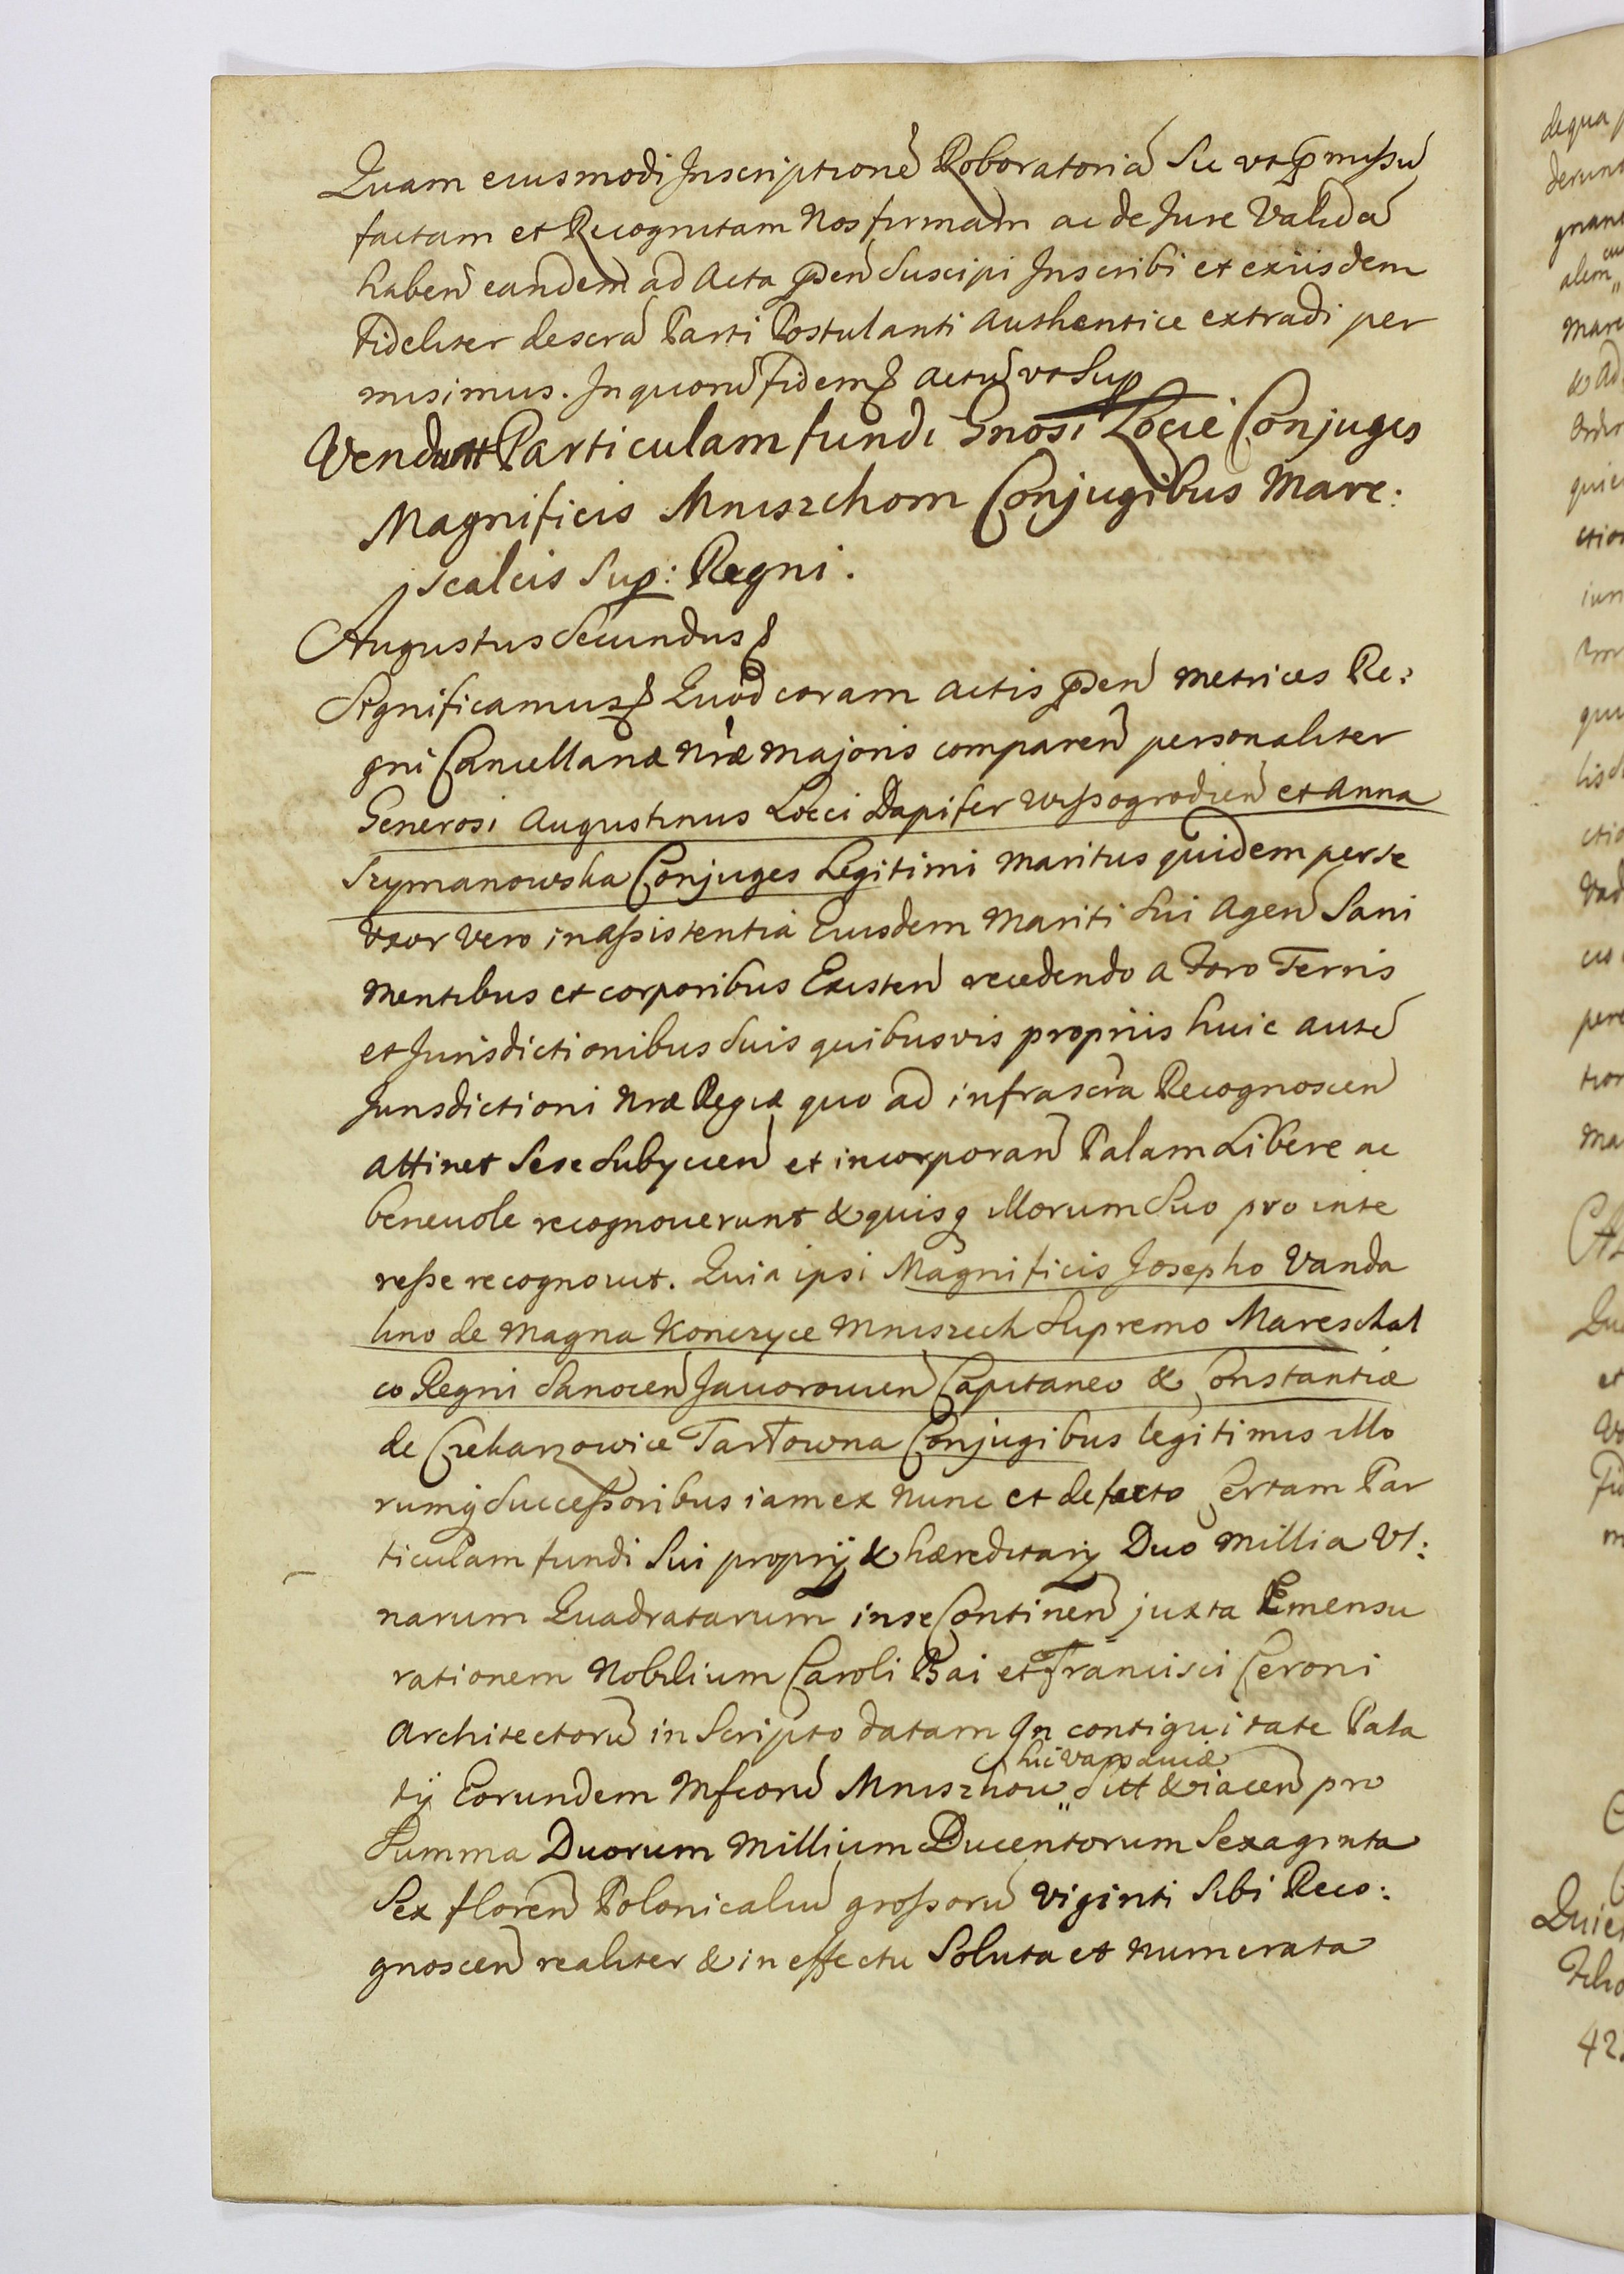 Quam eiusmodi Inscriptionē Roboratoriā Sic ut p̄missū
factam et Recognitam Nos firmam ac de Jure Validā
haben̄ eandem ad Acta p̄sen̄ Suscipi Inscribi et ex iisdem
Fideliter descrā Parti Postulanti Authentice extradi per
misimus. In quorū fidem & Actū ut Sup
Vendunt Particulam fundi Gnosi Locie Conjuges
Magnificis Mniszchom Conjugibus Mare:
scalcis Sup: Regni.
Augustus Secundus &
Significamus & Quod coram actis p̄sen̄ Metrices Re:
gni Cancellariæ Nræ Majoris comparen̄ personaliter
Generosi Augustinus Locci Dapifer Wyssogrodien̄ et Anna
Szymanowska Conjuges Legitimi Maritus quidem per se
Uxor Vero in assistentia Eiusdem Mariti Sui Agen̄ Sani
Mentibus et corporibus Existen̄ recedendo a Foro Terris
et Jurisdictionibus Suis quibusvis propriis huic autē
Jurisdictioni Nræ Regiæ quo ad infrascrā Recognoscen̄
attinet Sese Subycien̄ et incorporan̄ Palam Libere ac
beneuole recognouerunt & quisq illorum Suo pro inte
resse recognouit. Quia ipsi Magnificis Josepho Vanda
lino de Magna Konczyce Mniszech Supremo Mareschal
co Regni Sanocen̄ Jauorouien̄ Capitaneo & Constantiæ
de Czekarzowice Tarłowna Conjugibus legitimis illo
rumq Successoribus iam ex Nunc et de facto Certam Par
ticulam fundi Sui proprij & hæreditarij Duo Millia Vl:
narum Quadratarum in se Continen̄ juxta Emensu
rationem Nobilium Caroli Bai et Francisci Ceroni
Architectorū in Scripto datam In contiguitate Pala
hic Varsauiæ
tij Eorundem Mficorū Mniszhow „ Sitt & iacen̄ pro
Summa Duorum Millium Ducentorum Sexaginta
Sex floren̄ Polonicaliū grossorū Viginti Sibi Reco:
gnoscen̄ realiter & in effectu Soluta et Numerata